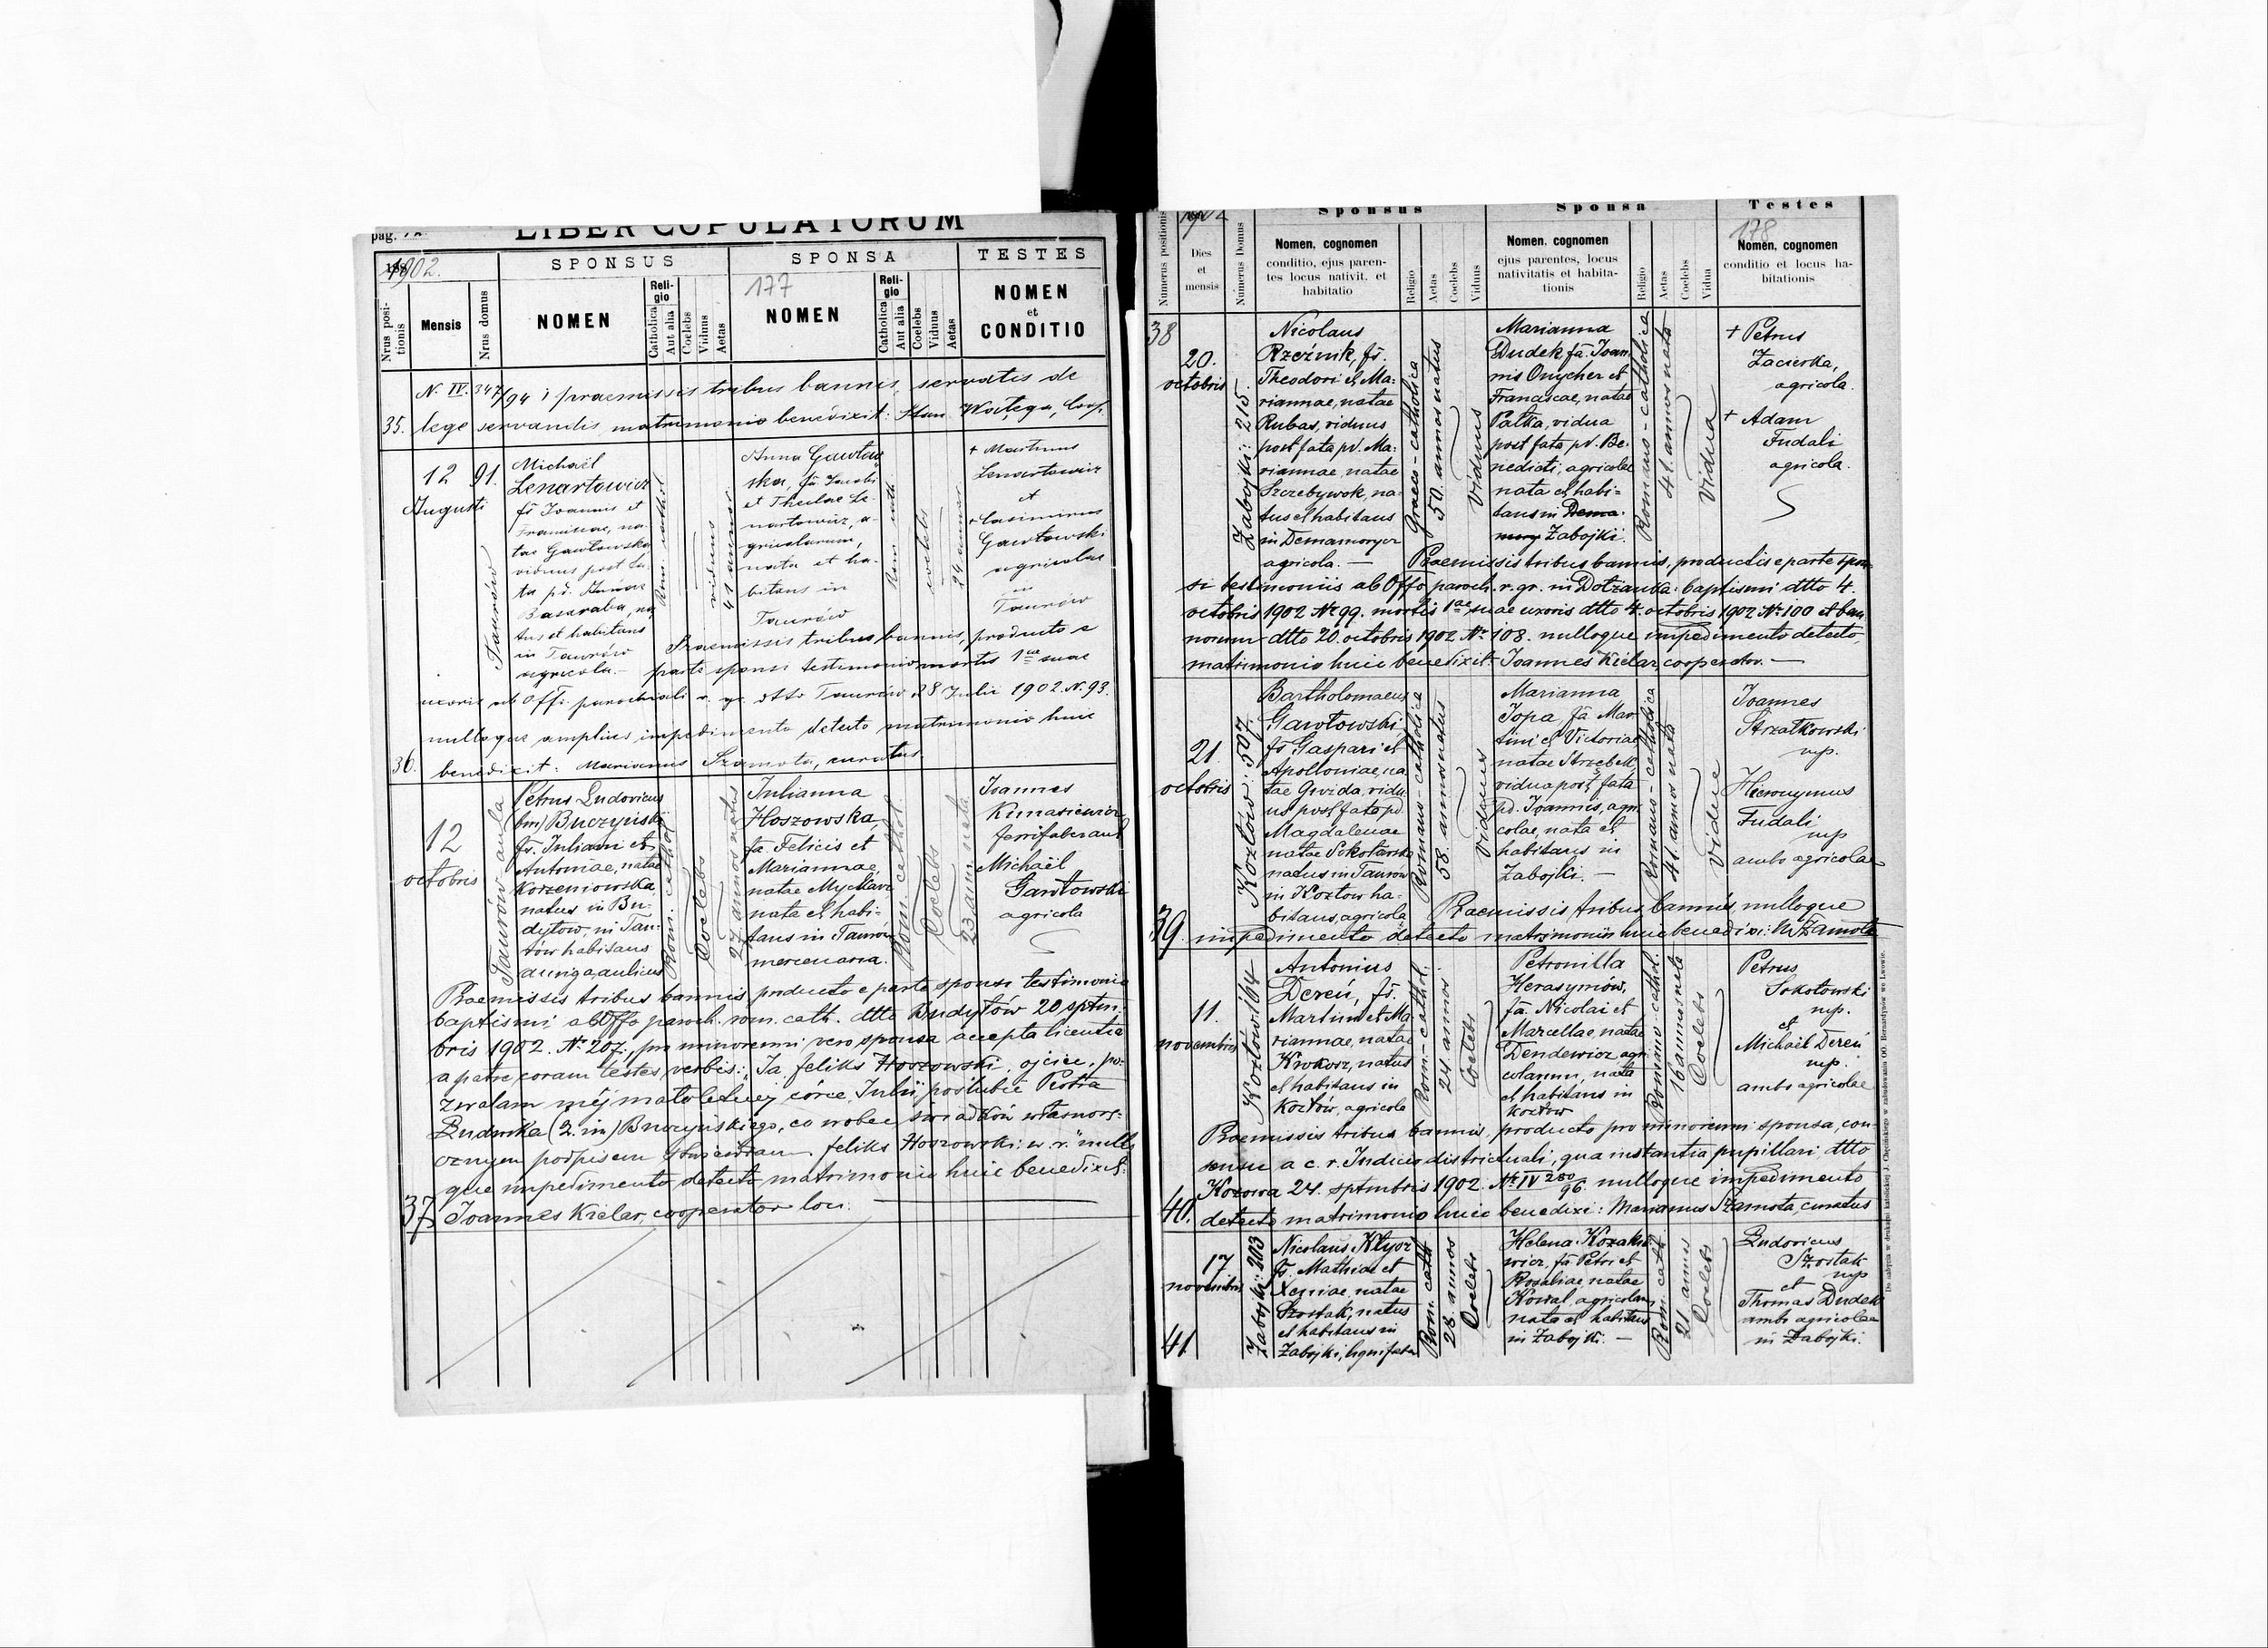 pag.
LIBER COPULATORUM
1902.
SPONSUS
SPONSA
TESTES
177
Nrus positionis
Mensis
Nrus domus
NOMEN
Religio
Catholica
Aut alia
Coelebs
Viduus
Aetas
NOMEN
Religio
Catholica
Aut alia
Coelebs
Viduus
Aetas
NOMEN
et
CONDITIO
N. IV. 347/94 i praemissis tribus bannis, servatis de
35. lege servandis matrimonio benedixit:
12
Augusti
91.
Taurów
Michaël
Lenartowicz
fs Joannis et
Franciscae, na-
tae Gawłowska
viduus post fa-
ta pd. Annae
Basaraba, na
tus et habitans
in Taurów
agricola.-
Rom. cathol
viduus
41 annor
Anna Gawłow
ska, fa Jacobi
et Theclae Le-
nartowicz, a-
gricolarum,
nata et ha-
bitans in
Taurów
Rom cath
coelebs
24 annor
+ Martinus
Lenartowicz
et
+ Casimirus
Gawłowski
agricolae
in
Taurów
Praemissis tribus bannis, producto e
parte sponsi testimonio mortis 1ae suae
uxoris ab Offi. parochiali r. gr. dtto Taurów 28 Julii 1902 N. 93.
nulloque amplius impedimento detecto matrimonio huic
36. benedixit: Marianus Szamota, curatus.
12
octobris
Taurów aula
Petrus Ludovicus
(bin) Buczyński
fs. Juliani et
Antoniae, natae
Korzeniowska,
natus in Bu-
dytów, in Tau-
rów habitans
auriga aulicus
Rom. cathol
Coelebs
27 annos natus
Julianna
Hoszowska,
fa Felicis et
Mariannae,
natae
nata et habi-
tans in Taurów
mercenaria.
Rom. cathol.
Coelebs
23 ann. nata
Joannes
Kunasiewicz
ferrifaber aul
Michaël
Gawłowski
agricola
Praemissis tribus bannis producto e parte sponsi testimonio
baptismi ab Offo paroch. rom. cath. dtto Budytów 20 sptm-
bris 1902. No 207., pro minorenni vero sponsa accepta licentia
a patre coram testes verbis: "Ja feliks Hoszowski, ojciec, po-
zwalam méj małoletniej córce, Julii poślubić Piotra
Ludwika (2. im) Buczyńskiego, co wobec świadków własnorę-
cznym podpisem stwierdzam. feliks Hoszowski: w. r." nullo
que impedimento detecto matrimonio huic benedixit:
37 Joannes Kielar, cooperator loci.
Numerus positionis
1902
Dies
et
mensis
Numerus Domus
Sponsus
Nomen, cognomen
conditio, ejus paren-
tes locus nativit. et
habitatio
Religio
Aetas
Coelebs
Viduus
Sponsa
Nomen, cognomen
ejus parentes, locus
nativitatis et habita-
tionis
Religio
Aetas
Coelebs
Vidua
Testes
178
Nomen, cognomen
conditio et locus ha-
bitationis
38
20.
octobris
Zabojki: 215.
Nicolaus
Rzeźnik, fs.
Theodori et Ma-
riannae, natae
Rubas, viduus
post fata pd. Ma-
riannae, natae
Szczebywok, na-
tus et habitans
in Demamorycz
agricola. —
Graeco-catholica
50. annos natus
Viduus
Marianna
Dudek, fa. Joan-
nis Onycher et
Franciscae, natae
Pałka, vidua
post fata pd. Be-
nedicti, agricolae
nata et habi-
tans in Dema-
mory Zabojki.
Romano-catholica
41. annos nata
Vidua
+ Petrus
Zacierka,
agricola.
+ Adam
Fudali
agricola.
Praemissis tribus bannis, productis e parte spon-
si testimoniis ab Offo paroch. r. gr. in Dołżanka: baptismi dtto 4.
octobris 1902 No 99. mortis 1ae suae uxoris dtto 4. octobris 1902 No 100 et ban
norum dtto 20. octobris 1902 No 108. nulloque impedimento detecto,
matrimonio huic benedixit Joannes Kielar cooperator. —
21.
octobris
Kozłów: 507.
Bartholomaeus
Gawłowski
fs Gaspari et
Apolloniae, na
tae Gwizda, vidu
us post fata pd.
Magdalenae
natae Sokołowska
natus in Taurów
in Kozłow ha-
bitans, agricola
Romano-catholica
58. annos natus
Viduus
Marianna
Jopa, fa Mar
tini et Victoriae
natae
vidua post fata
pd. Joannis, agri
colae, nata et
habitans in
Zabojki. —
Romano-catholica
41. annos nata
Viduae
Joannes
Strzałkowski
mp.
Hieronymus
Fudali
mp
ambo agricolae
Praemissis tribus bannis, nulloque
39. impedimento detecto matrimonio huic benedixi: M. Szamota
11.
novembris
Kozłów 164
Antonius
Dereń, fs.
Martini et Ma
riannae, natae
Krokosz, natus
et habitans in
Kozłów, agricola
Rom-cathol.
24. annos
Coelebs
Petronilla
Herasymów,
fa. Nicolai et
Marcellae, natae
Dendewicz agri
colarum, nata
et habitans in
Kozłow
Romano-cathol.
16 annos nata
Coelebs
Petrus
Sokołowski
mp.
et
Michaël Dereń
mp.
ambo agricolae
Praemissis tribus bannis, producto pro minorenni sponsa, con-
sensu a c. r. Judicio districtuali, qua instantia pupillari, dtto
Kozowa 24. sptmbris 1902. No IV 280/96. nulloque impedimento
40. detecto matrimonio huic benedixi: Marianus Szamota, curatus
17
novembris
41.
Zabojki: 203
Nicolaus Kłyoz
fs. Mathiae et
Xeniae, natae
Szostak, natus
et habitans in
Zabojki, lignifaber
Rom. cath
28. annos
Coelebs
Helena Kozakie
wicz, fa Petri et
Rosaliae, natae
Kowal, agricolarum
nata et habitans
in Zabojki. —
Rom. cath.
21. annos
Coelebs
Ludovicus
Szostak
mp
et
Thomas Dudek
ambo agricolae
in Zabojki.
Do nabycia w drukarni katolickiej J. Chęcińskiego w zabudowaniu OO. Bernardynów we Lwowie.